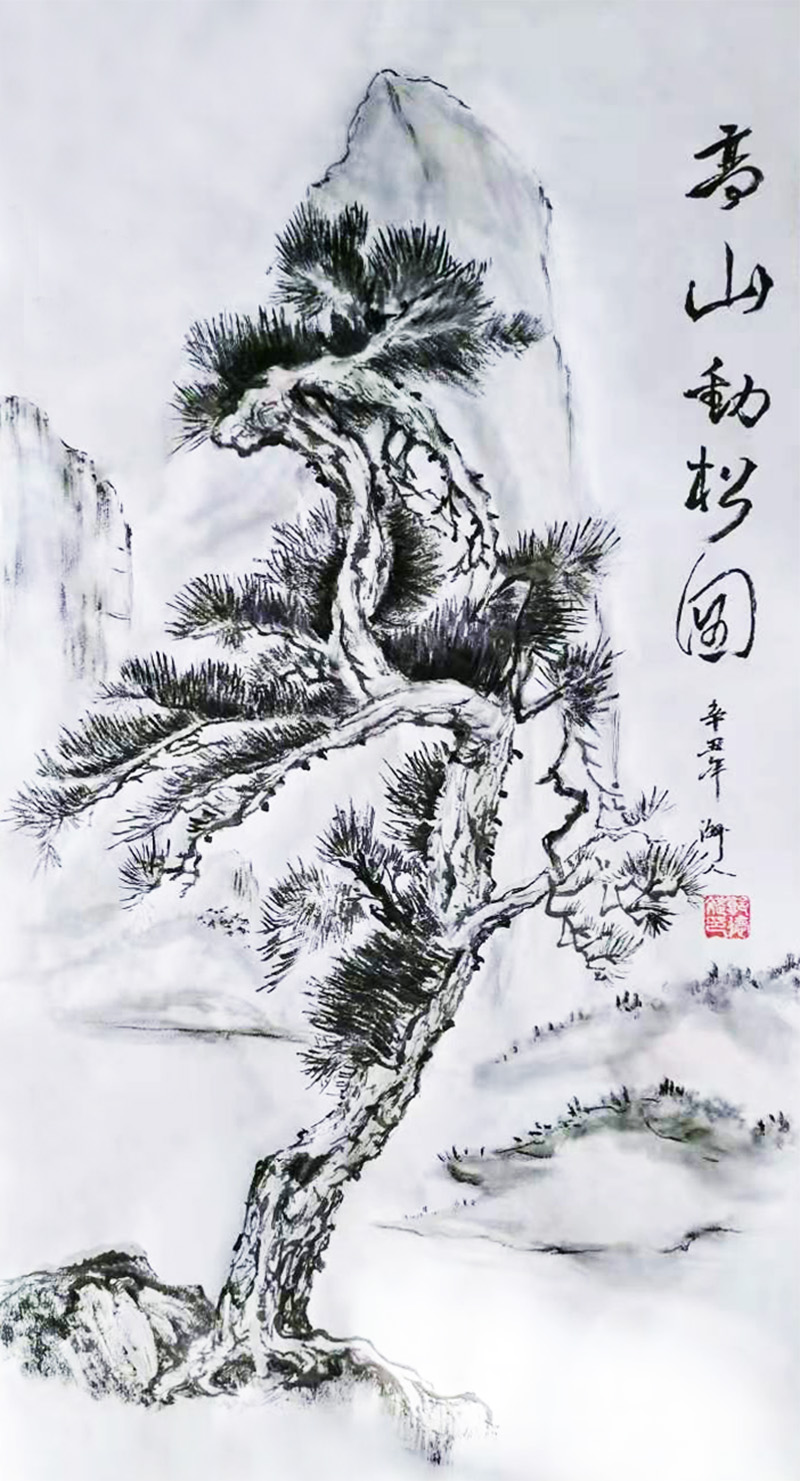 高山動松圖
辛丑年 人